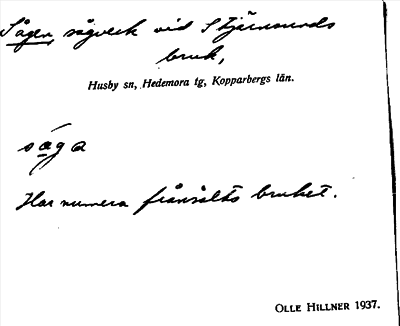 Sågen, sågverk vid Stjärnsunds
bruk,
Husby sn, Hedemora tg, Kopparbergs län.
såga
Har numera frånsålts bruket.
OLLE HILLNER 1937.